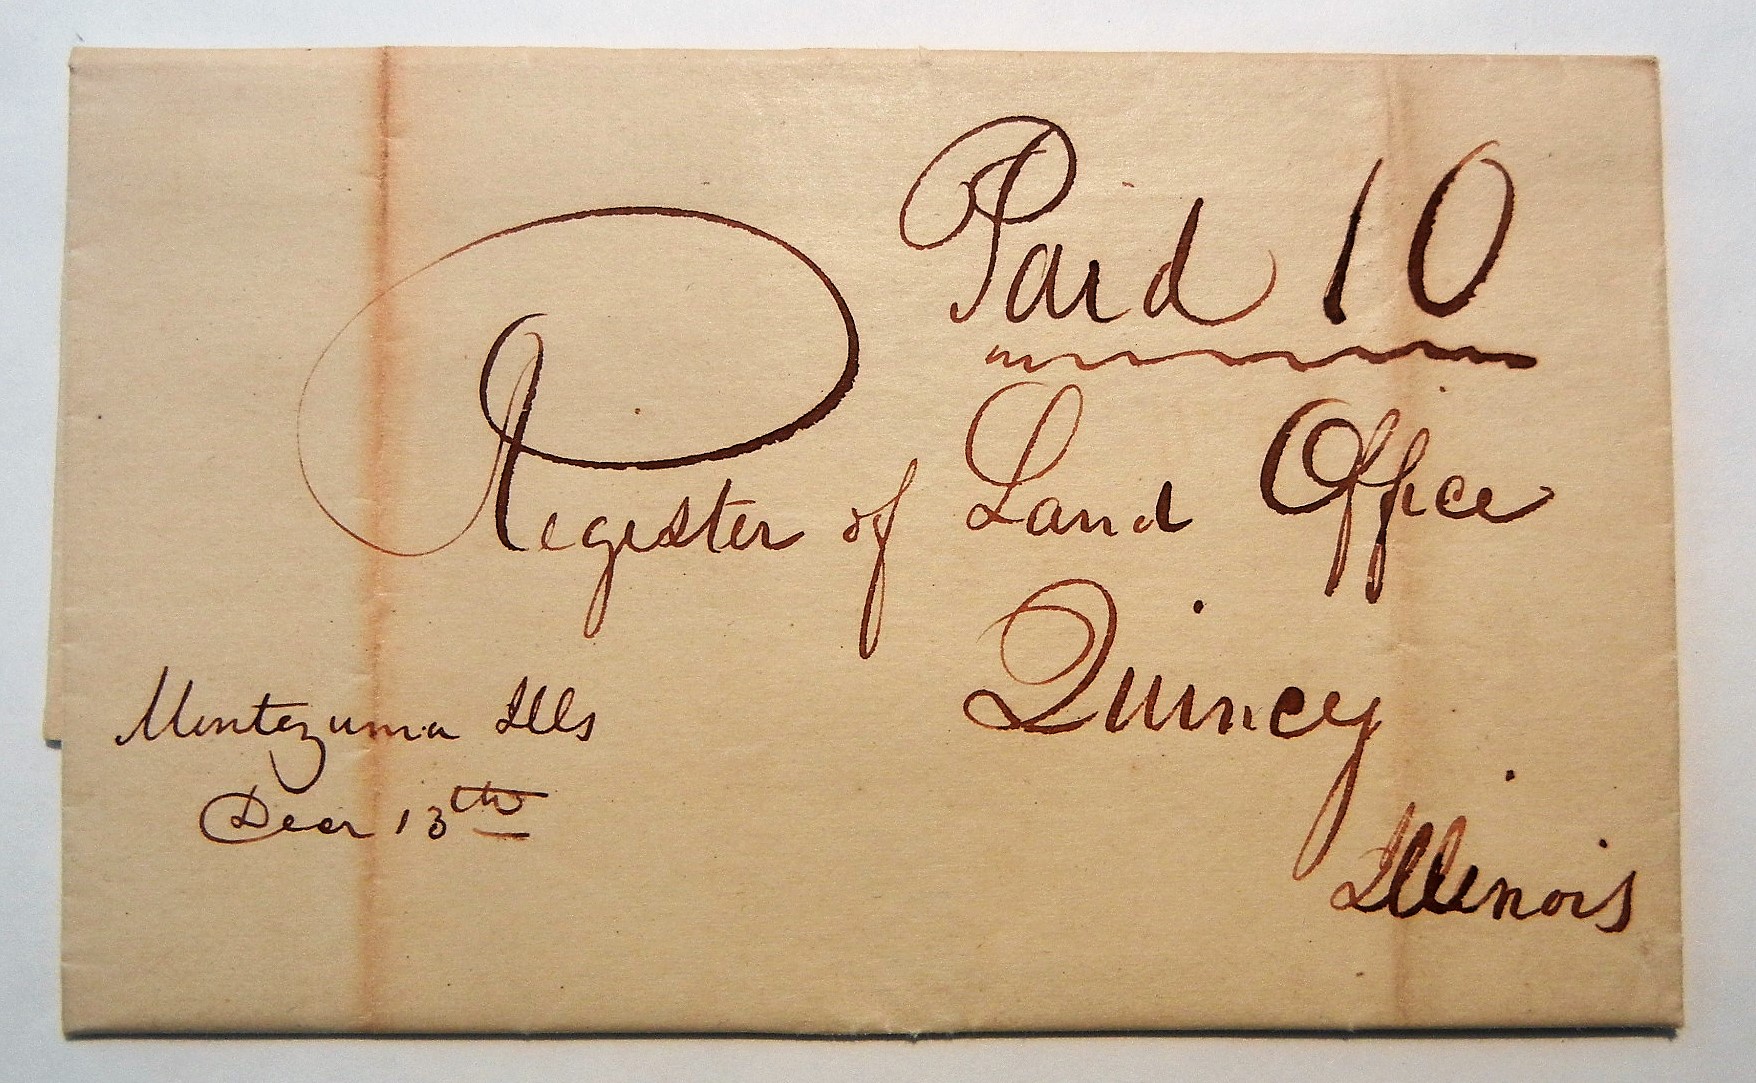 Paid 10
Register of Land Office
Quincy
Illinois
Montezuma Ills
Decr 13th